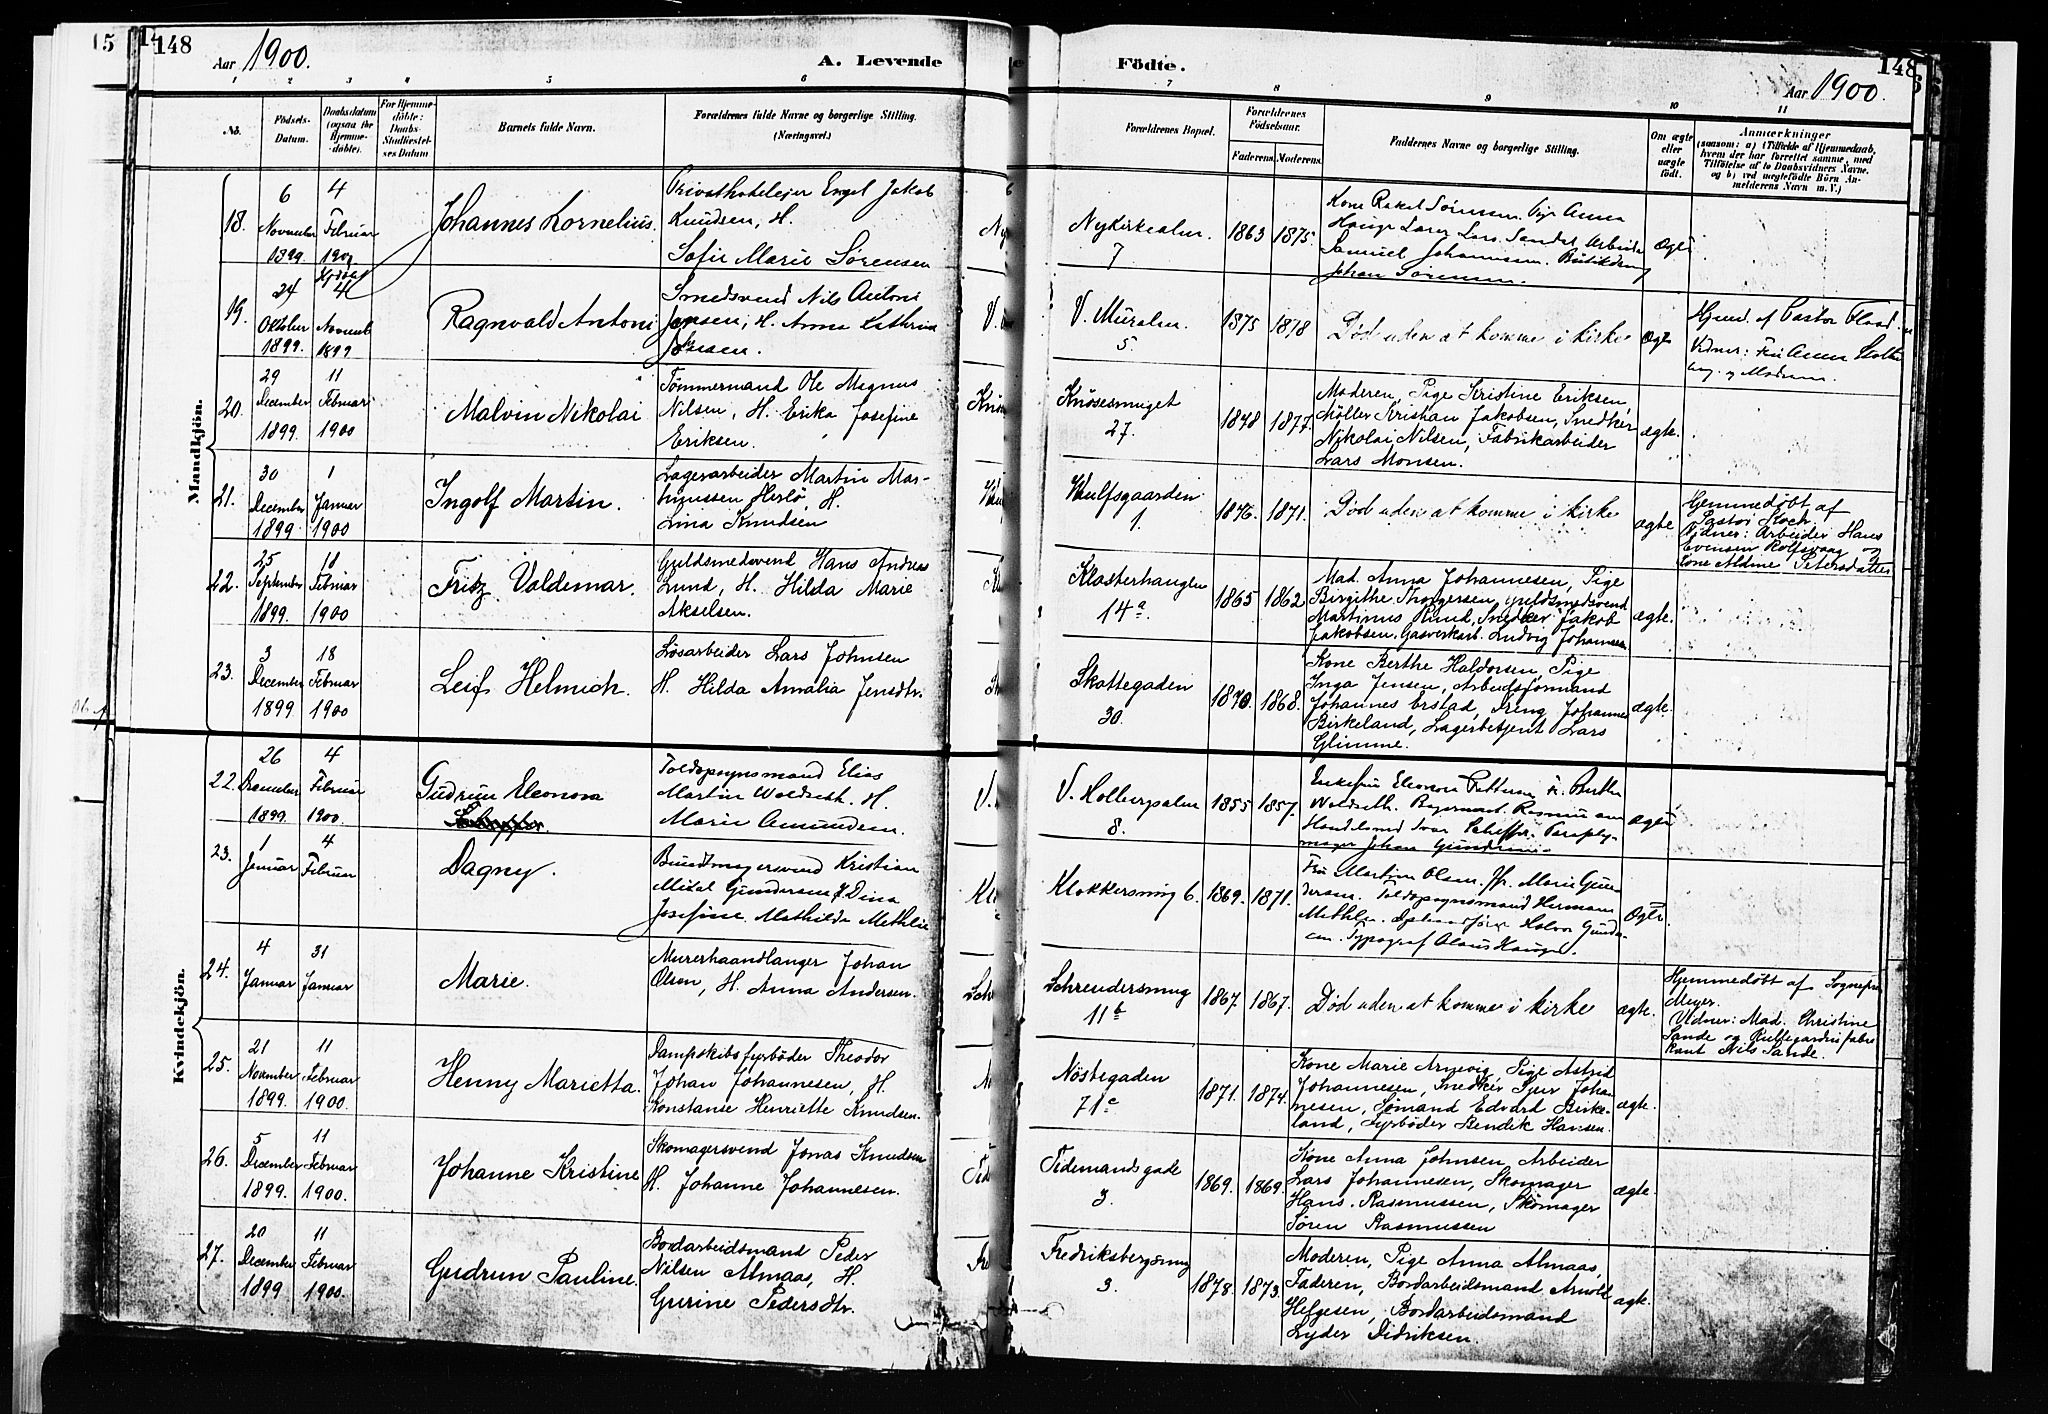 15
148
Aar 1900.
A. Levende
Födte.
148
Aar 1900.
1 2 3 4 5 6 7 8 9 10 11
No.
Födsels-Datum.
Daabsdatum (ogsaa for Hjemme-döbte).
For Hjemme-döbte: Daabs-Stadfæstel-ses Datum
Barnets fulde Navn.
Forældrenes fulde Navne og borgerlige Stilling. (Næringsvei.)
Forældrenes Bopæl.
Forældrenes Födselsaar.
Faderens. Moderens.
Faddernes Navne og borgerlige Stilling.
Om ægte eller uægte födt.
Anmærkninger
(saasom: a) i Tilfælde af Hjemmedaab,
hvem der har forrettet samme, med
Tilföielse af to Daabsvidners Navne,
og b) ved uægtefödte Börn An-
melderens Navn m. V.)
Mandkjön.
18.
6 November 1899
4 Februar 1900
Johannes Kornelius.
Privathoteleier Engel Jakob
Knudsen, H.
Sofie Marie Sörensen
Nykirkealm. 7
1863 1875.
Kone Rakel Sörensen. Pige Anna
Hauge Lærer Lars Sandal Arbeider
Samuel Johannesen. Butikdreng
Johan Sörensen.
Ægte
19.
24 Oktober 1899.
4 Novemb 1899
Ragnvald Antoni
Smedsvend Nils Antoni
Jensen, H. Anna Kathrine
Jensen.
V. Muralm. 5.
1875 1878
Död uden at komme i kirke
Ægte
Hjmd. af Pastor Flood
Vidner: Frk Anna
og Madam.
20.
29 December 1899.
11 Februar 1900
Malvin Nikolai
Tømmermand Ole Magnus
Nilsen, H. Erika Josefine
Eriksen.
Knösesmuget 27.
1848 1877.
Moderen, Pige Kristine Eriksen,
Möller Kristian Jakobsen, Snedker
Nikolai Nilsen, Fabrikarbeider
Lars Monsen.
ægte.
21.
30 December 1899.
1 Januar 1900
Ingolf Martin.
Lagerarbeider Martin Mar-
tinussen Herlö, H.
Lina Knudsen
Wulfsgaarden 1.
1876. 1871.
Död uden at komme i kirke
ægte
Hjemmedøbt af
Pastor Koch.
Vidner: Arbeider Hans
Evensen Rolfsvaag og
Kone Aldine Petersdatter
22.
25 September 1899.
18 Februar 1900
Fritz Valdemar.
Guldsmedsvend Hans Andreas
Lund, H. Hilda Marie
Akselsen.
Klosterhaugen 14 a.
1865 1862
Mad. Anna Johannesen, Pige
Birgithe Thorgersen, Guldsmedsvend
Martinus Lund, Snedker Jakob
Jakobsen, Gasverkarb. Ludvig Johannesen
ægte.
23.
3 December 1899
18 Februar 1900
Leif Helmich.
Løsarbeider Lars Johnsen
H. Hilda Amalia Jensdtr.
Skottegaden 30.
1870. 1868.
Kone Berthe Haldorsen, Pige
Inga Jensen, Arbeidsformand
Johannes Ørstad, Dreng Johannes
Birkeland, Lagerbetjent Lars
Glimme.
ægte.
Kvindekjön.
22.
26 December 1899.
4 Februar 1900.
Gudrun Eleonora
Toldopsynsmand Elias
Martin Woldseth. H.
Marie Amundsen.
V. Holbergsalm 8.
1855 1857.
Enkefru Eleonora Pettersen, Fr. Berthe
Woldseth.
Ægte
23.
1 Januar
4 Februar
Dagny.
Buntmagersvend Kristian
Mikal Gundersen H Dina
Josefine Mathilda Methlie
Klokkersmug 6.
1869. 1871.
Fru Martine Olsen. Fr. Marie Gun-
dersen. Toldopsynsmand Herman
Methlie. Halvor Gunder-
sen. Typograf Olaus Hauge.
Ægte
24.
4 Januar
31 Januar
Marie.
Murerhaandlanger Johan
Olsen, H. Anna Andersen.
Schreudersmug 11 b
1867. 1867.
Død uden at komme i kirke
ægte.
Hjemmedøbt af Sognepr.
Meyer.
Vidner: Mad. Christine
Sande og Rullegardinfabri
kant Nils Sande.
25.
21 November 1899.
11 Februar 1900.
Henny Marietta.
Dampskibsfyrbøder Theodor
Johan Johannesen, H.
Konstanse Henriette Knudsen.
Nöstegaden 71 c
1871. 1874.
Kone Marie Arnevig Pige Astrid
Johannesen, Snedker Sjur Johan
nesen, Sømand Edvard Birke-
land, Fyrbøder Bendik Hansen.
ægte.
26.
5 December 1899.
11 Februar 1900.
Johanne Kristine
Skomagersvend Jonas Knudsen
H. Johanne Johannesen.
Tidemandsgade 3.
1869. 1869.
Kone Anna Johnsen, Arbeider
Lars Johannesen, Skomager
Hans Rasmussen, Skomager
Søren Rasmussen
ægte.
27.
20 December 1899
11 Februar 1900.
Gudrun Pauline.
Bordarbeidsmand Peder
Nilsen Almaas, H.
Gurine Pedersdtr.
Fredriksbergsmug 3.
1878. 1873.
Moderen, Pige Anna Almaas,
Faderen, Bordarbeidsmand Arnold
Helgesen, Bordarbeidsmand
Lyder Didriksen.
ægte.